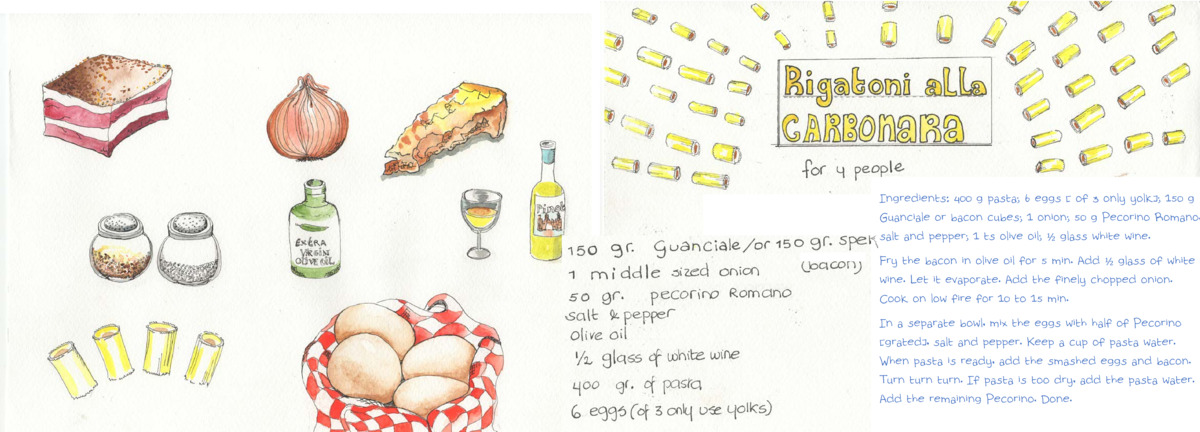 Rigatoni alla
CARBONARA
for 4 people
EXTRA
VIRGIN
OLIVE OIL
Pinot
150 gr. Guanciale/or 150 gr. spek
(bacon)
1 middle sized onion
50 gr. pecorino Romano
salt & pepper
olive oil
1/2 glass of white wine
400 gr. of pasta
6 eggs (of 3 only use yolks)
Ingredients: 400 g pasta; 6 eggs [ of 3 only yolk]; 150 g
Guanciale or bacon cubes; 1 onion; 50 g Pecorino Romano
salt and pepper; 1 ts olive oil; ½ glass white wine.
Fry the bacon in olive oil for 5 min. Add ½ glass of white
wine. Let it evaporate. Add the finely chopped onion.
Cook on low fire for 10 to 15 min.
In a separate bowl, mix the eggs with half of Pecorino
[grated], salt and pepper. Keep a cup of pasta water.
When pasta is ready, add the smashed eggs and bacon.
Turn turn turn. If pasta is too dry, add the pasta water.
Add the remaining Pecorino. Done.